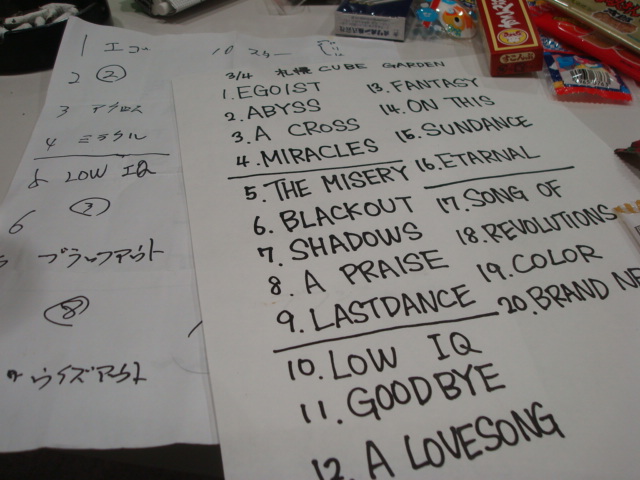 3/4 札幌 CUBE GARDEN
1. EGOIST
2. ABYSS
3. A CROSS
4. MIRACLES
5. THE MISERY
6. BLACKOUT
7. SHADOWS
8. A PRAISE
9. LASTDANCE
10. LOW IQ
11. GOODBYE
12. A LOVESONG
13. FANTASY
14. ON THIS
15. SUNDANCE
16. ETARNAL
17. SONG OF
18. REVOLUTIONS
19. COLOR
20. BRAND NE
1 エゴ
2 ②
3 アクロス
4 ミラクル
5 LOW IQ
6 ②
ブラックアウト
⑧
ウィズアウト
10